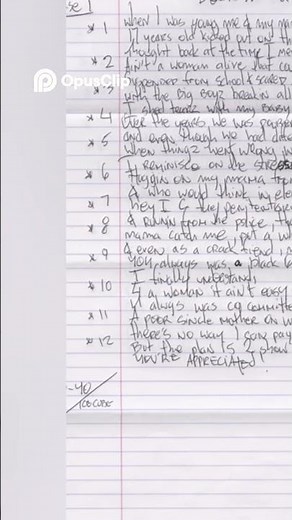 se 1
* 1 When I was young me & my ma
17 years old kicked out on th
* 2 thought back at the time I
Ain't a woman alive that ca
OpusClip
* 3 suspended from school scared
with the Big Boyz breakin all
* 4 I shed tears with my baby
over the years we was
* 5 and even though we had
when thingz went wrong
* 6 I reminisce on the stress
Huggin on my mama from
* 7 & who would think in ele
hey I C the penitentiary
* 8 & runnin from the police, th
mama catch me, put a w
* 9 & even as a crack fiend,
you always was a black
* 10 I finally understand,
4 a woman it ain't easy
* 11 U always was committe
A poor single mother on w
* 12 there's no way I can pay
But the plan is 2 show
YOU'RE APPRECIATED
-40
ICE CUBE